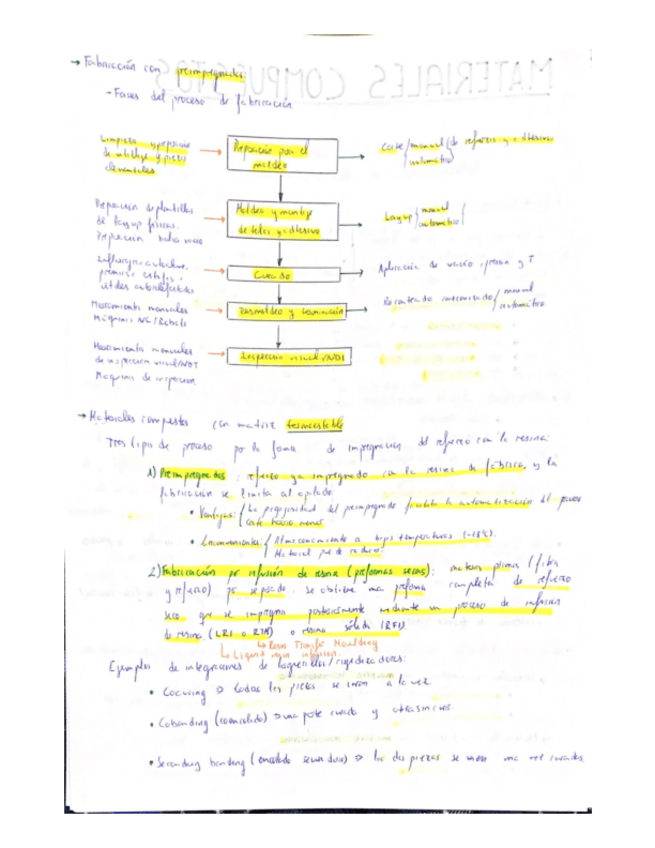 → Fabricación con preimpregnados:
- Fases del proceso de fabricación
Limpieza y preparación de utillaje y piezas elementales
Preparación para el moldeo
Corte / manual / de refuerzo y adhesivo
automático
Preparación de plantillas de lay up físicas. Preparación bolsa vacío
Moldeo y montaje de telas y adhesivo
Lay up / manual
automático
autoclave, prensas, estufas, útiles autocalefactados
Curado
Aplicación de vacío, presión y T
Herramientas manuales Máquinas NC / Robots
Desmoldeo y terminación
Recanteado mecanizado / manual
automático
Herramientas manuales de inspección visual/NDT Máquinas de inspección
Inspección visual/NDI
→ Materiales compuestos con matriz termoestable
Tres tipos de proceso por la forma de impregnación del refuerzo con la resina:
1) Preimpregnados: refuerzo ya impregnado con la resina de fábrica, y la
fabricación se limita al apilado
• Ventajas: { La pegajosidad del preimpregnado facilita la automatización del proceso
• Inconvenientes: { Almacenamiento a bajas temperaturas (-18ºC).
Material
2) Fabricación por infusión de resina (preformas secas): materias primas (fibra
y refuerzo) por separado. Se obtiene una preforma completa de refuerzo
seco que se impregna posteriormente mediante un proceso de infusión
de resina (LRI o RTM) o resina sólida (RFI)
↳ Resin Transfer Moulding
↳ Liquid resin infusion.
Ejemplos de integraciones de larguerillos / rigidizadores:
• Cocuring ⇒ todas las piezas se unen a la vez
• Cobonding (coencolado) ⇒ una parte curada y otra sin curar.
• Secondary bonding (encolado secundario) ⇒ las dos piezas se unen una vez curadas